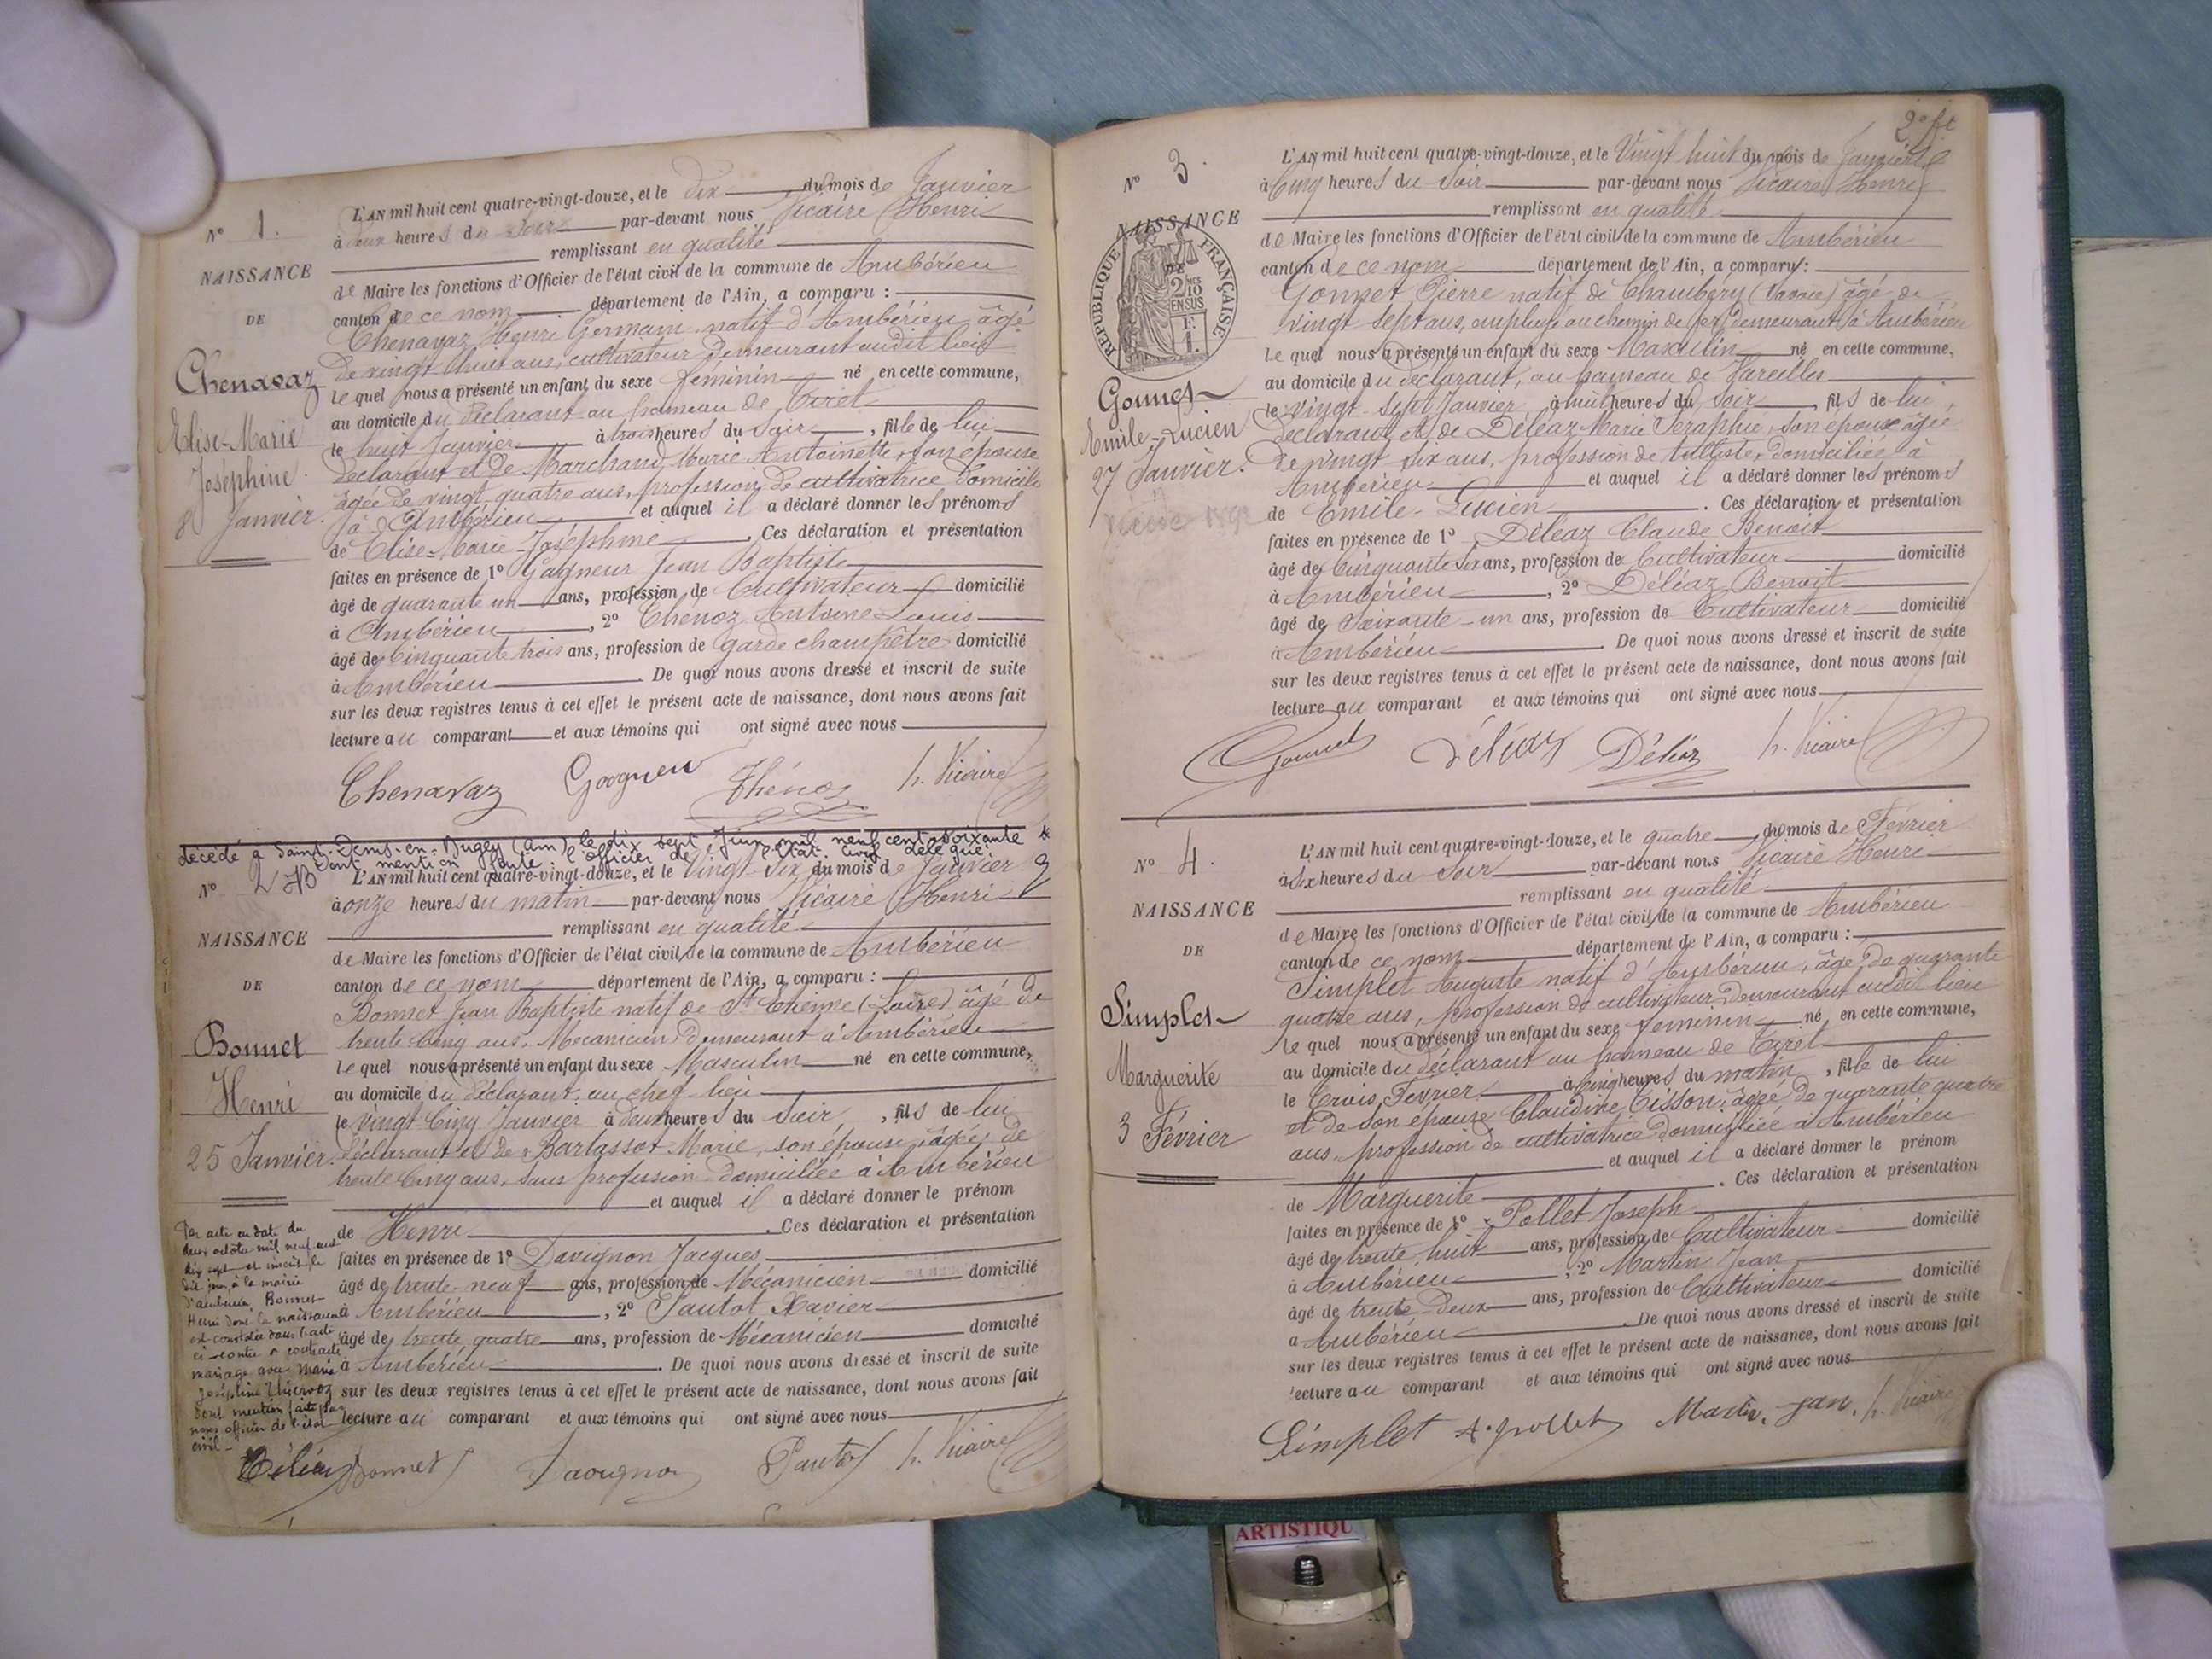 L'AN mil huit cent quatre-vingt-douze, et le dix du mois de Janvier
Nº 1.
à deux heures du soir par-devant nous Vicaire Henri
remplissant en qualité
NAISSANCE
de Maire les fonctions d'Officier de l'état civil de la commune de Ambérieu
DE
canton de ce nom département de l'Ain, a comparu :
Chenavaz Henri Germain natif d'Ambérieu âgé
Chenavaz
de vingt huit ans, cultivateur demeurant audit lieu
le quel nous a présenté un enfant du sexe féminin né en cette commune,
au domicile du déclarant au hameau de Tiret
Elise-Marie
le huit Janvier à trois heures du soir, fille de lui
Joséphine
déclarant et de Marchand Marie Antoinette, son épouse
8 Janvier.
âgée de vingt quatre ans, profession de cultivatrice domicilié
à Ambérieu et auquel il a déclaré donner les prénoms
de Elise-Marie-Joséphine. Ces déclaration et présentation
faites en présence de 1º Gagneur Jean Baptiste
âgé de quarante un ans, profession de Cultivateur domicilié
à Ambérieu, 2º Thénoz Antoine Louis
âgé de Cinquante trois ans, profession de garde champêtre domicilié
à Ambérieu. De quoi nous avons dressé et inscrit de suite
sur les deux registres tenus à cet effet le présent acte de naissance, dont nous avons fait
lecture au comparant et aux témoins qui ont signé avec nous
Chenavaz Gagneur Thénoz h. Vicaire
décédé à Saint-Denis-en-Bugey (Ain) le dix sept Juin mil neuf cent soixante
Dont mention faite. L'officier de l'état civil délégué.
Nº 2
L'AN mil huit cent quatre-vingt-douze, et le Vingt-Six du mois de Janvier
à onze heures du matin par-devant nous Vicaire Henri
remplissant en qualité
NAISSANCE
de Maire les fonctions d'Officier de l'état civil de la commune de Ambérieu
DE
canton de ce nom département de l'Ain, a comparu :
Bonnet Jean Baptiste natif de St Etienne (Loire) âgé de
Bonnet
trente Cinq ans, Mécanicien, demeurant à Ambérieu
le quel nous a présenté un enfant du sexe Masculin né en cette commune,
Henri
au domicile du déclarant, au chef-lieu
le vingt Cinq Janvier à deux heures du Soir, fils de lui
25 Janvier.
déclarant et de Bartassot Marie, son épouse, âgée de
trente Cinq ans, sans profession domiciliée à Ambérieu
et auquel il a déclaré donner le prénom
de Henri. Ces déclaration et présentation
faites en présence de 1º Davignon Jacques
âgé de trente-neuf ans, profession de Mécanicien domicilié
à Ambérieu, 2º Pautot Xavier
âgé de trente quatre ans, profession de Mécanicien domicilié
à Ambérieu. De quoi nous avons dressé et inscrit de suite
sur les deux registres tenus à cet effet le présent acte de naissance, dont nous avons fait
lecture au comparant et aux témoins qui ont signé avec nous
Par acte en date du
deux octobre mil neuf cent
dix sept et inscrit le
dit jour, à la mairie
d'Ambérieu, Bonnet
Henri dont la naissance
est constatée dans l'acte
ci-contre a contracté
mariage avec Marie
Joséphine
dont mention faite par
nous officier de l'état
civil-
Bonnet Davignon Pautot h. Vicaire
2e ft
Nº 3.
L'AN mil huit cent quatre-vingt-douze, et le Vingt huit du mois de Janvier
à Cinq heures du soir par-devant nous Vicaire Henri
remplissant en qualité
NAISSANCE
RÉPUBLIQUE FRANÇAISE
DE
2/10 MES
EN SUS
F. 1.
de Maire les fonctions d'Officier de l'état civil de la commune de Ambérieu
canton de ce nom département de l'Ain, a comparu :
Gonnet Pierre natif de Chambéry (Savoie) âgé de
vingt sept ans, employé au chemin de fer, demeurant à Ambérieu
le quel nous a présenté un enfant du sexe Masculin né en cette commune,
au domicile du déclarant, au hameau de Vareilles
Gonnet
le vingt-sept Janvier à huit heures du soir, fils de lui,
Emile-Lucien
déclarant et de Déléaz Marie Séraphie, son épouse âgée
27 Janvier.
de vingt six ans, profession de tulliste, domiciliée à
Ambérieu et auquel il a déclaré donner les prénoms
de Emile-Lucien. Ces déclaration et présentation
faites en présence de 1º Déléaz Claude Benoit
âgé de Cinquante six ans, profession de Cultivateur domicilié
à Ambérieu, 2º Déléaz Benoit
âgé de Soixante-un ans, profession de Cultivateur domicilié
à Ambérieu. De quoi nous avons dressé et inscrit de suite
sur les deux registres tenus à cet effet le présent acte de naissance, dont nous avons fait
lecture au comparant et aux témoins qui ont signé avec nous
Gonnet Déléaz Déléaz h. Vicaire
L'AN mil huit cent quatre-vingt-douze, et le quatre du mois de Février
Nº 4.
à six heures du soir par-devant nous Vicaire Henri
remplissant en qualité
NAISSANCE
de Maire les fonctions d'Officier de l'état civil de la commune de Ambérieu
DE
canton de ce nom département de l'Ain, a comparu :
Simplet Auguste natif d'Ambérieu, âgé de quarante
Simplet
quatre ans, profession de cultivateur, demeurant audit lieu
le quel nous a présenté un enfant du sexe féminin né en cette commune,
Marguerite
au domicile du déclarant au hameau de Tiret
le Trois Février à Cinq heures du matin, fille de lui
3 Février
et de son épouse Claudine Tisson, âgée de quarante quatre
ans, profession de cultivatrice domiciliée à Ambérieu
et auquel il a déclaré donner le prénom
de Marguerite. Ces déclaration et présentation
faites en présence de 1º Pollet Joseph
âgé de trente huit ans, profession de Cultivateur domicilié
à Ambérieu, 2º Martin Jean
âgé de trente-Deux ans, profession de Cultivateur domicilié
à Ambérieu. De quoi nous avons dressé et inscrit de suite
sur les deux registres tenus à cet effet le présent acte de naissance, dont nous avons fait
lecture au comparant et aux témoins qui ont signé avec nous
Simplet J. pollet Martin Jean. h. Vicaire
ARTISTIQU